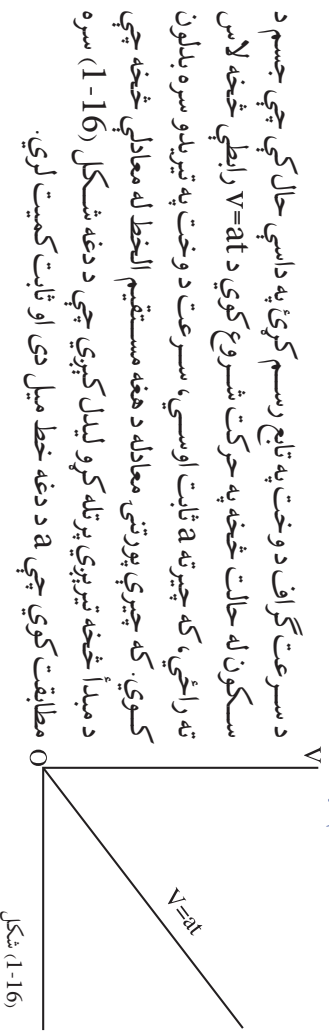 د سرعت گراف د وخت په تابع رسم کړئ په داسې حال کې چې جسم د
سکون له حالت څخه په حرکت شروع کوي د v=at رابطې څخه لاس
ته راځي، که چېرته a ثابت اوسي، سرعت د وخت په تېرېدو سره بدلون
کوي. که چېرې پورتنۍ معادله د هغه مستقيم الخط له معادلې څخه چې
د مبدأ څخه تېرېږي پرتله کړو ليدل کېږي چې د دغه شکل (1-16) سره
مطابقت کوي چې a د دغه خط ميل دی او ثابت کميت لري.
V
V=at
O
(1-16) شکل